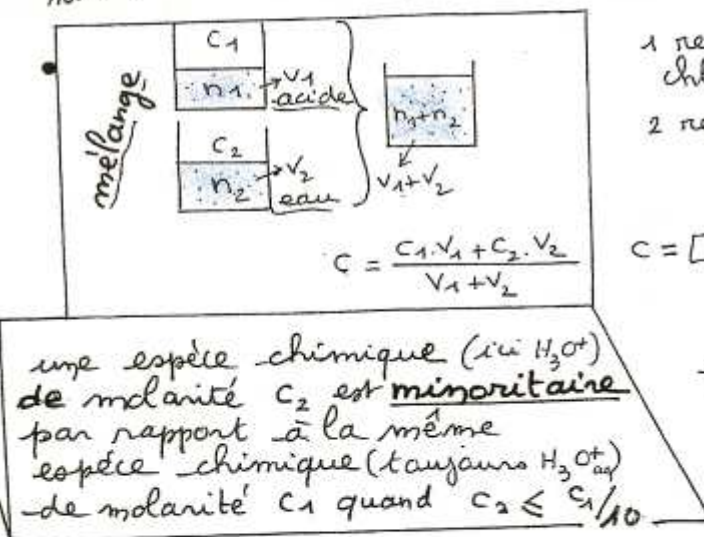 mélange
C1
n1
V1
acide
C2
n2
V2
eau
n1+n2
V1+V2
C = (C1.V1 + C2.V2) / (V1 + V2)
1
2
C = [
une espèce chimique (ici H3O+)
de molarité C2 est minoritaire
par rapport à la même
espéce chimique (toujours H3O+aq)
de molarité C1 quand C2 ⩽ C1/10